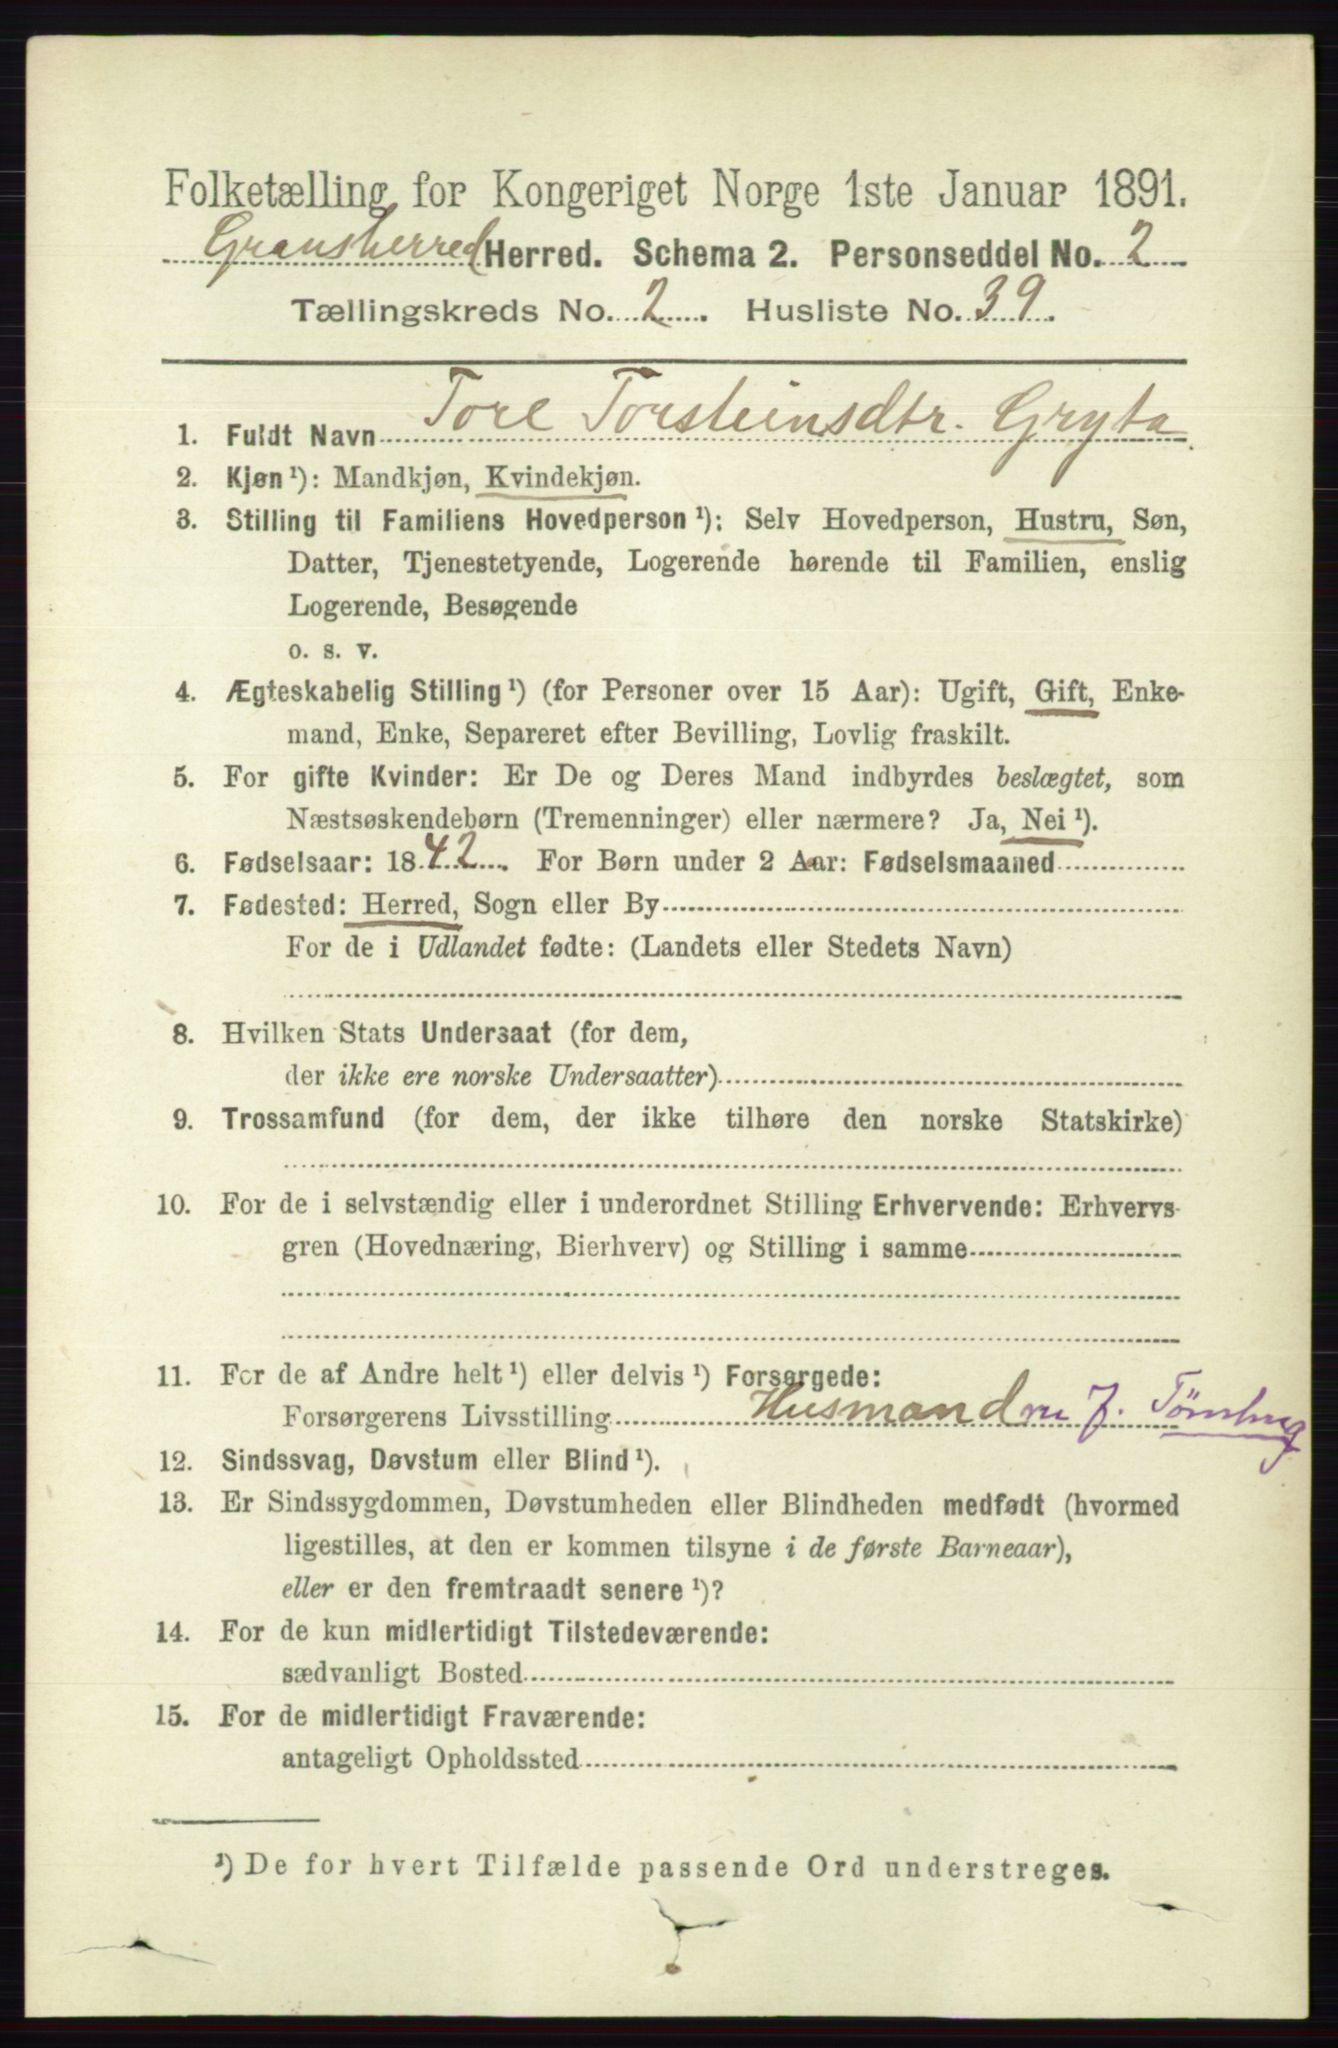 Folketælling for Kongeriget Norge 1ste Januar 1891.
Gransherred Herred. Schema 2. Personseddel No. 2
Tællingskreds No. 2. Husliste No. 39.
1. Fuldt Navn Tore Torsteinsdtr. Gryta
2. Kjøn ¹): Mandkjøn, Kvindekjøn.
3. Stilling til Familiens Hovedperson ¹): Selv Hovedperson, Hustru, Søn,
Datter, Tjenestetyende, Logerende hørende til Familien, enslig
Logerende, Besøgende
o. s. v.
4. Ægteskabelig Stilling ¹) (for Personer over 15 Aar): Ugift, Gift, Enke-
mand, Enke, Separeret efter Bevilling, Lovlig fraskilt.
5. For gifte Kvinder: Er De og Deres Mand indbyrdes beslægtet, som
Næstsøskendebørn (Tremenninger) eller nærmere? Ja, Nei ¹).
6. Fødselsaar: 1842. For Børn under 2 Aar: Fødselsmaaned
7. Fødested: Herred, Sogn eller By
For de i Udlandet fødte: (Landets eller Stedets Navn)
8. Hvilken Stats Undersaat (for dem,
der ikke ere norske Undersaatter)
9. Trossamfund (for dem, der ikke tilhøre den norske Statskirke)
10. For de i selvstændig eller i underordnet Stilling Erhvervende: Erhvervs-
gren (Hovednæring, Bierhverv) og Stilling i samme
11. For de af Andre helt ¹) eller delvis ¹) Forsørgede:
Forsørgerens Livsstilling Husmand J.
12. Sindssvag, Døvstum eller Blind ¹).
13. Er Sindssygdommen, Døvstumheden eller Blindheden medfødt (hvormed
ligestilles, at den er kommen tilsyne i de første Barneaar),
eller er den fremtraadt senere ¹)?
14. For de kun midlertidigt Tilstedeværende:
sædvanligt Bosted
15. For de midlertidigt Fraværende:
antageligt Opholdssted
¹) De for hvert Tilfælde passende Ord understreges.